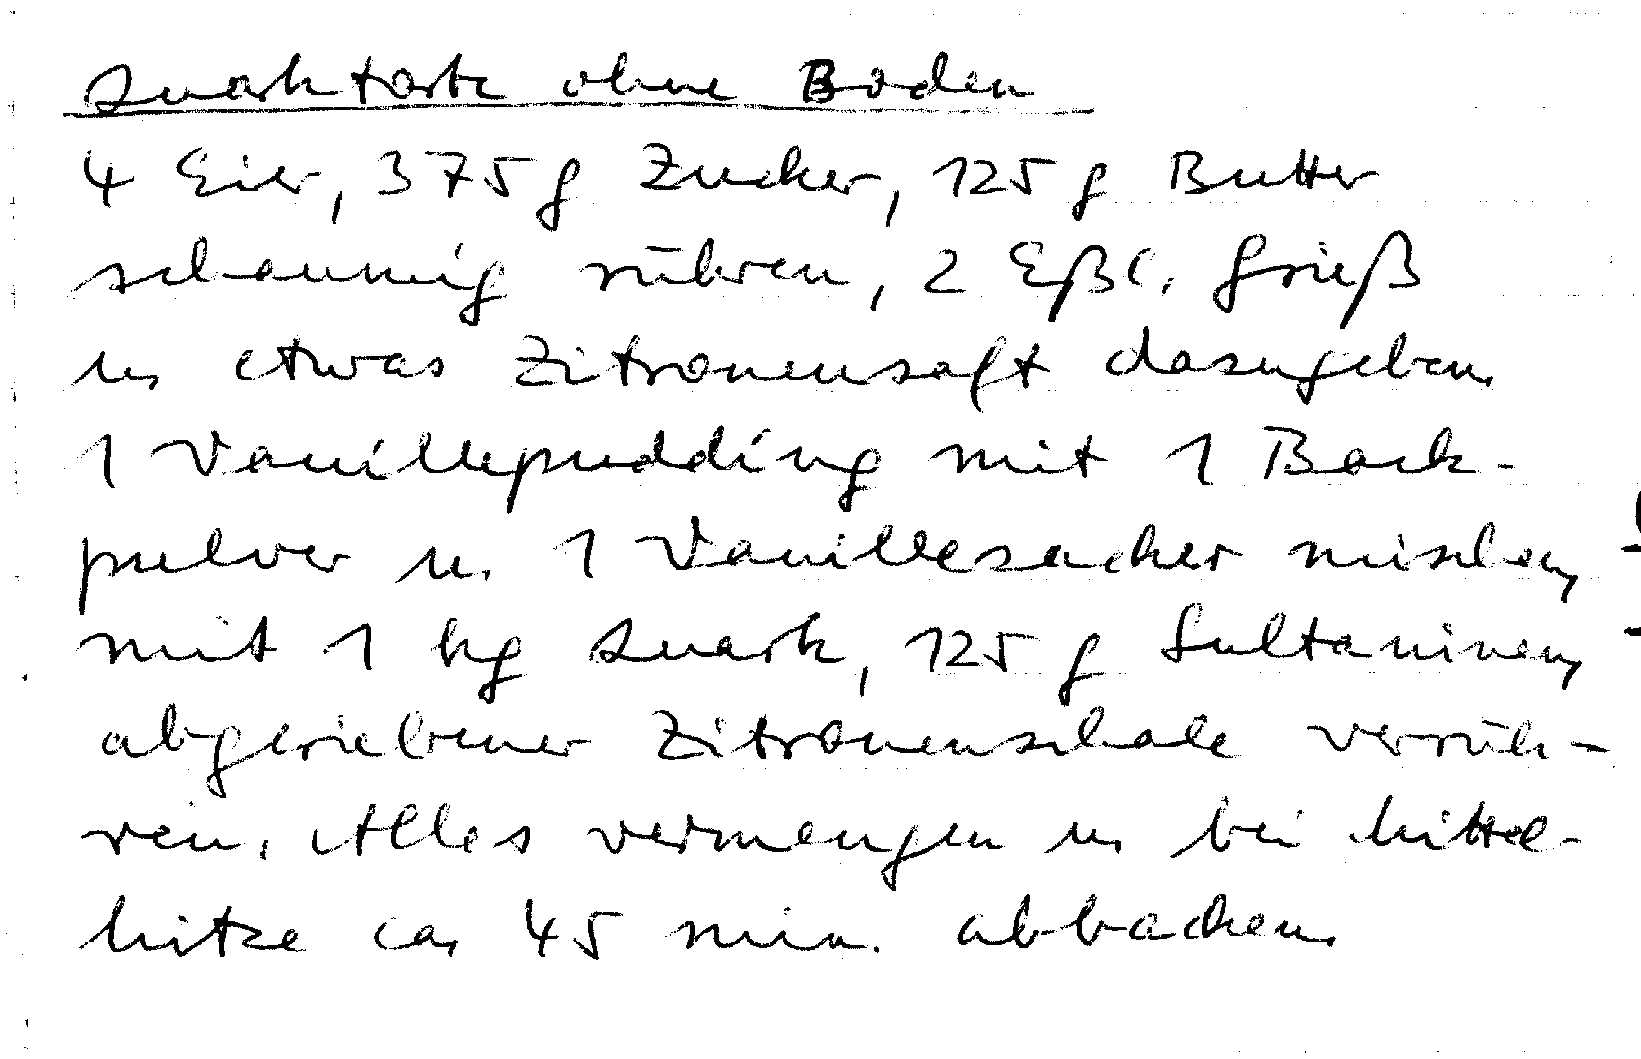 Quarktorte ohne Boden
4 Eier, 375 g Zucker, 125 g Butter
schaumig rühren, 2 Eßl. Grieß
u. etwas Zitronensaft dazugeben.
1 Vanillepudding mit 1 Back-
pulver u. 1 Vanillezucker mischen,
mit 1 kg Quark, 125 g Sultaninen,
abgeriebener Zitronenschale verrüh-
ren. Alles vermengen u. bei Mittel-
hitze ca. 45 min. abbacken.